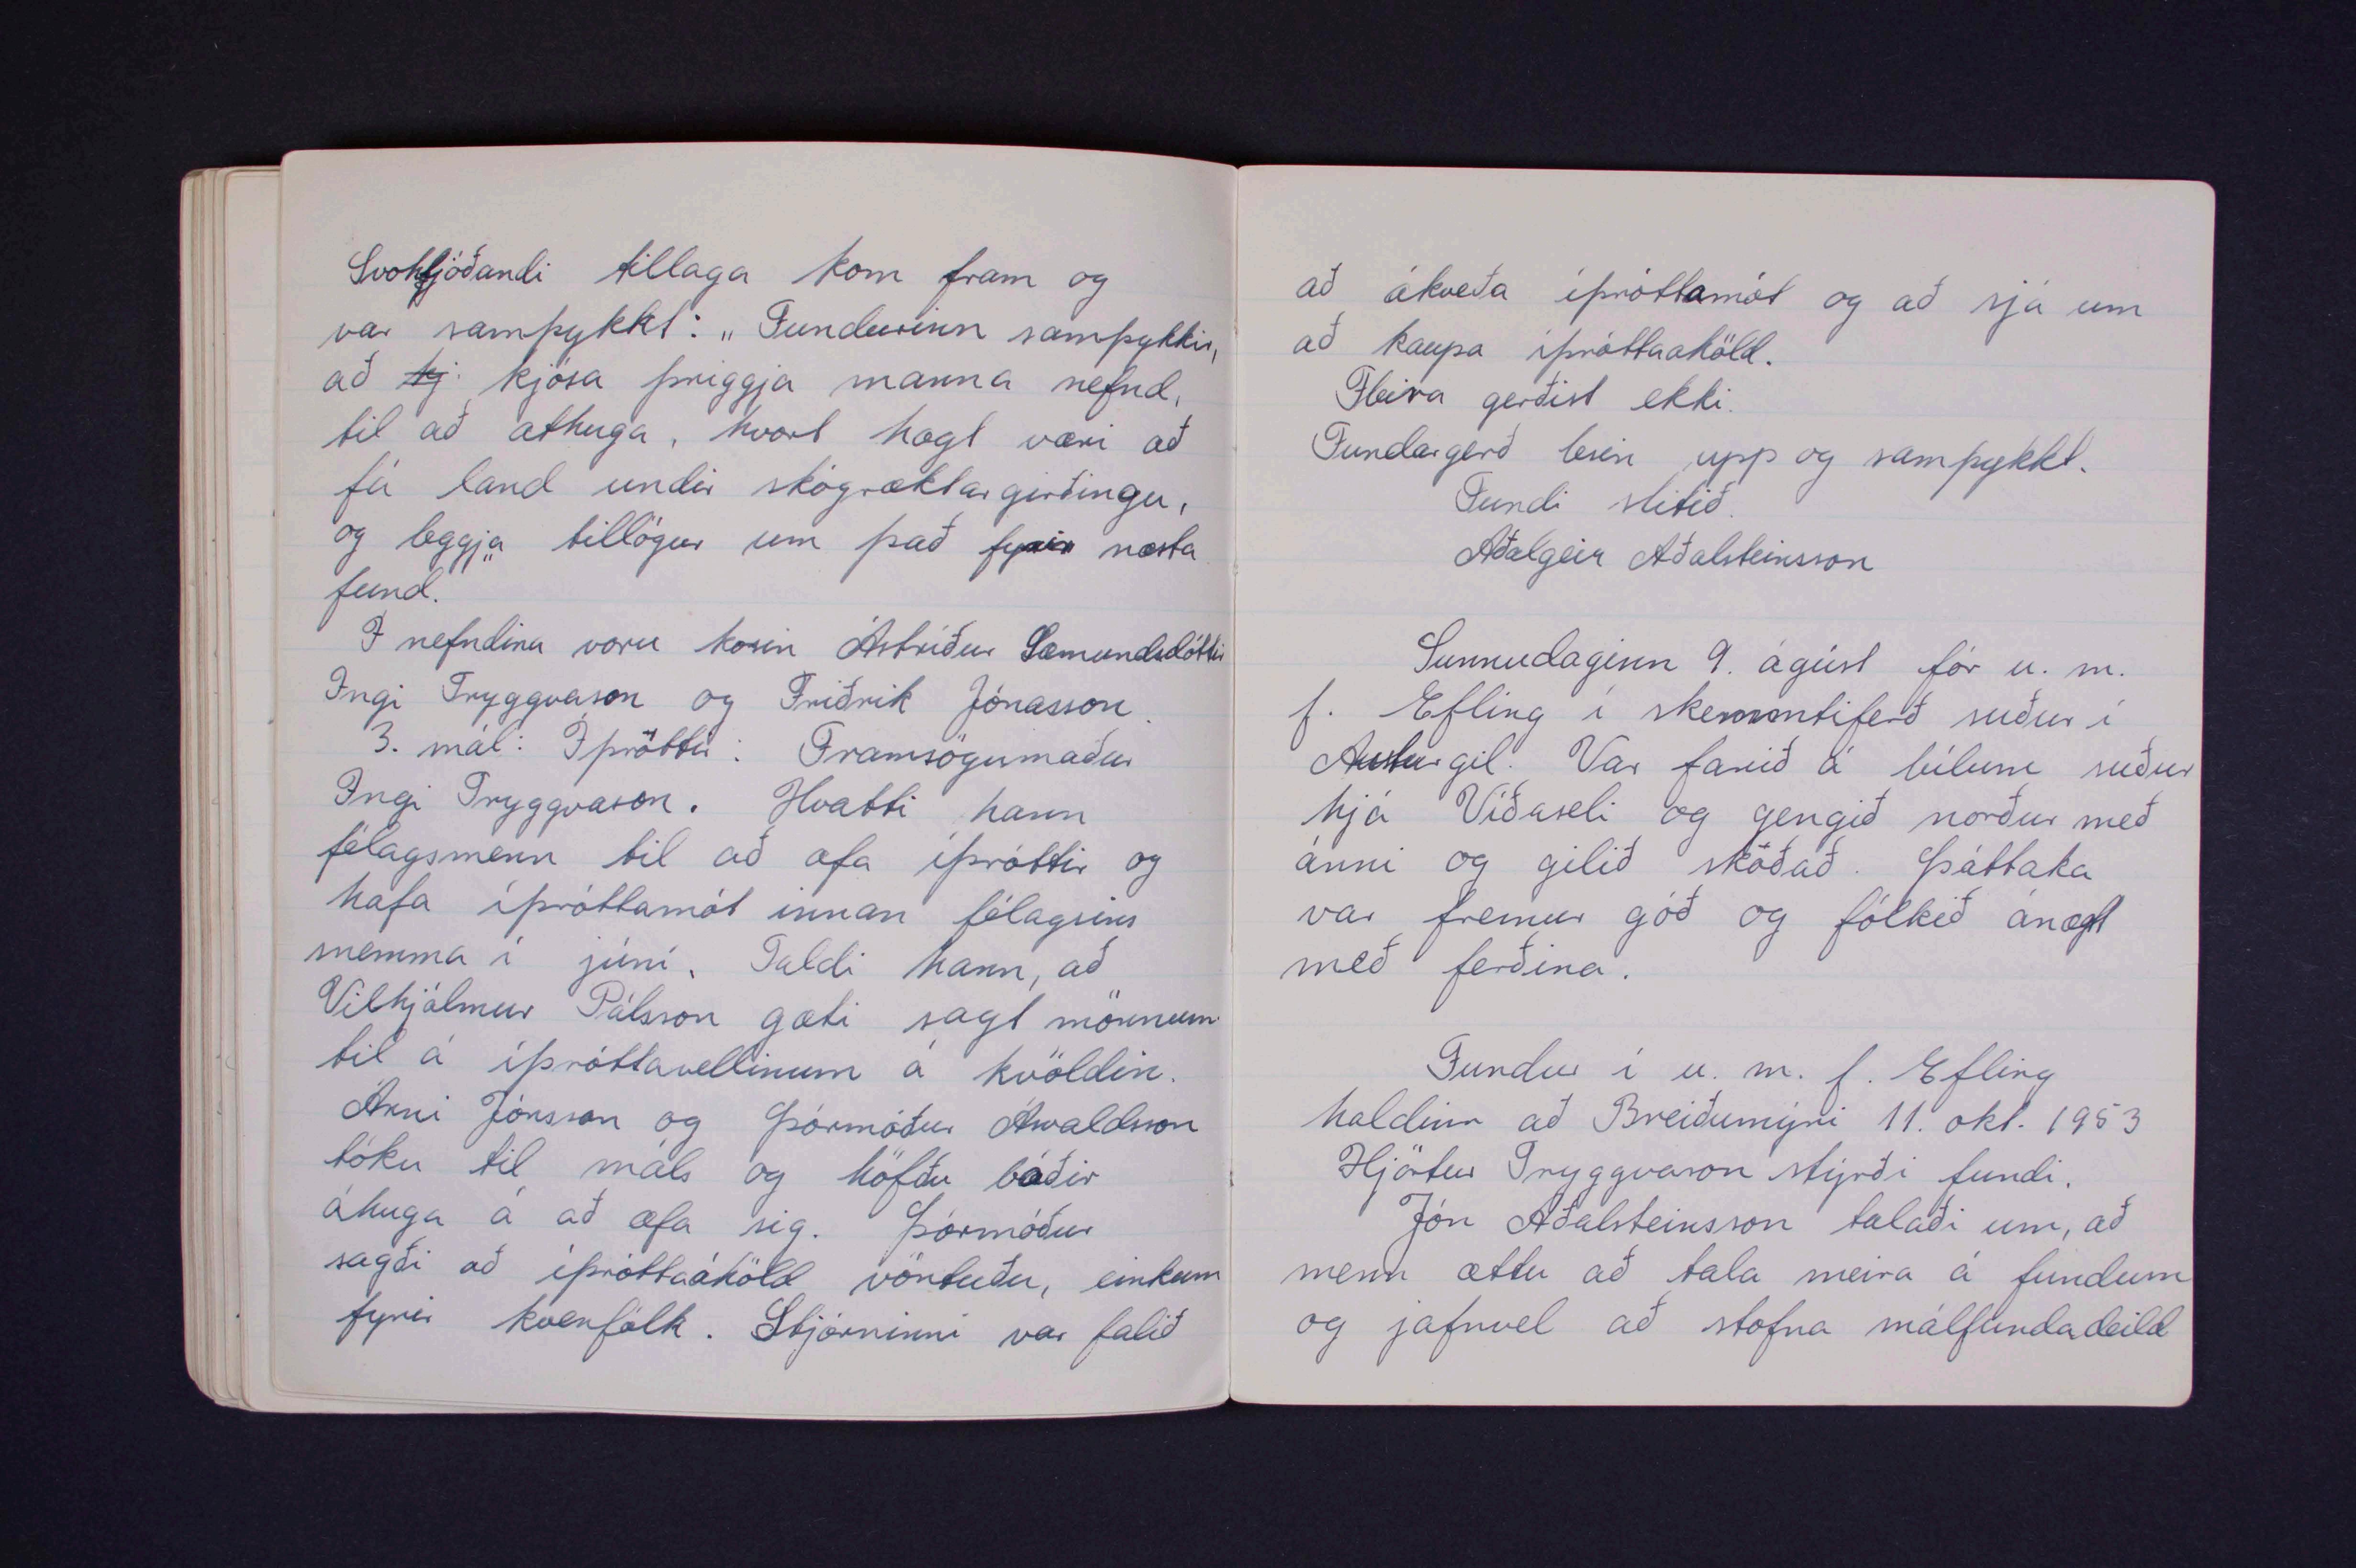 Svohljóðandi tillaga kom fram og
var samþykkt: „Fundurinn samþykkir,
að kj. kjósa þriggja manna nefnd,
til að athuga, hvort hægt væri að
fá land undir skógræktargirðingu,
og leggja tillögur um það fyrir næsta
fund."
Í nefndina voru kosin Ástríður Sæmundsdóttir
Ingi Tryggvason og Friðrik Jónasson.
3. mál: Íþróttir: Framsögumaður
Ingi Tryggvason. Hvatti hann
félagsmenn til að æfa íþróttir og
hafa íþróttamót innan félagsins
snemma í júní. Taldi hann, að
Vilhjálmur Pálsson gæti sagt mönnum
til á íþróttavellinum á kvöldin.
Árni Jónsson og Þórmóður Ásvaldsson
tóku til máls og höfðu báðir
áhuga á að æfa sig. Þórmóður
sagði að íþróttaáhöld vöntuðu, einkum
fyrir kvenfólk. Stjórninni var falið
að ákveða íþróttamót og að sjá um
að kaupa íþróttaahöld.
Fleira gerðist ekki.
Fundargerð lesin upp og samþykkt.
Fundi slitið.
Aðalgeir Aðalsteinsson
Sunnudaginn 9. ágúst fór u. m.
f. Efling í skemmtiferð suður í
Austurgil. Var farið á bílum suður
hjá Víðaseli og gengið norður með
ánni og gilið skoðað. Þáttaka
var fremur góð og fólkið ánægt
með ferðina.
Fundur í u. m. f. Efling
haldinn að Breiðumýri 11. okt. 1953
Hjörtur Tryggvason stýrði fundi.
Jón Aðalsteinsson talaði um, að
menn ættu að tala meira á fundum
og jafnvel að stofna málfundadeild